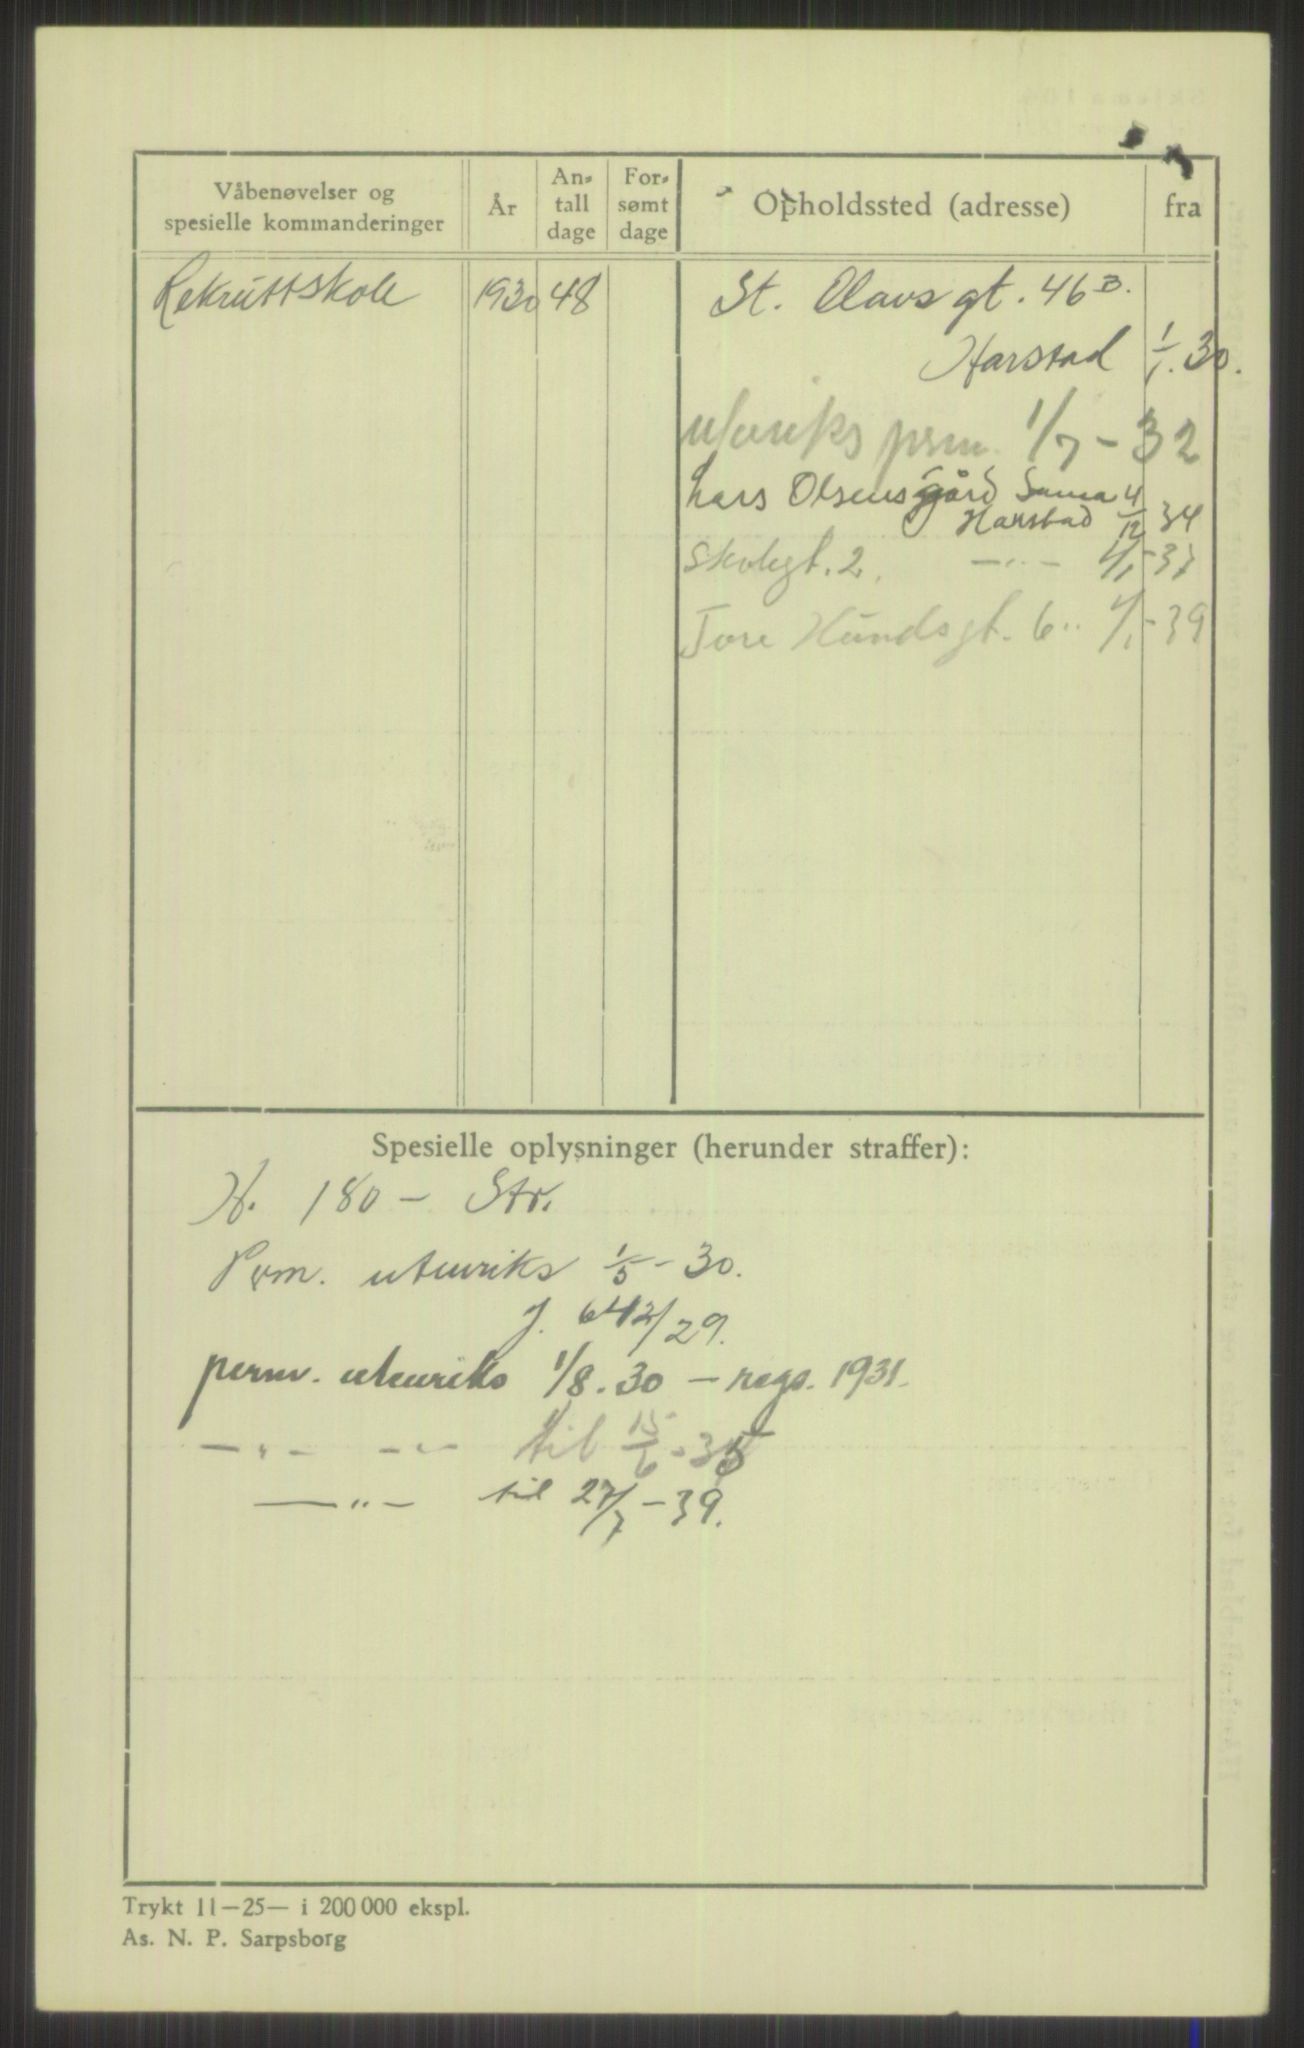 Våbenøvelser og
spesielle kommanderinger
År
An-
tall
dage
For-
sømt
dage
Opholdssted (adresse)
fra
Rekruttskole 1930 48
St. Olavs gt. 46 B.
Harstad 1/1. 30.
utenriks perm. 1/7 - 32
Lars Olsens gård Sama 4/12 34
Harstad
Skolegt. 2. —"— 1/1 - 37
Tore Hunds gt. 6 " 1/1 - 39
Spesielle oplysninger (herunder straffer):
H. 180 - Str.
Perm. utenriks 1/5 - 30.
J. 642/29.
perm. utenriks 1/8. 30 — 1931.
—"— —"— til 15/6 - 35
—"— til 27/7 - 39.
Trykt 11—25— i 200 000 ekspl.
As. N. P. Sarpsborg